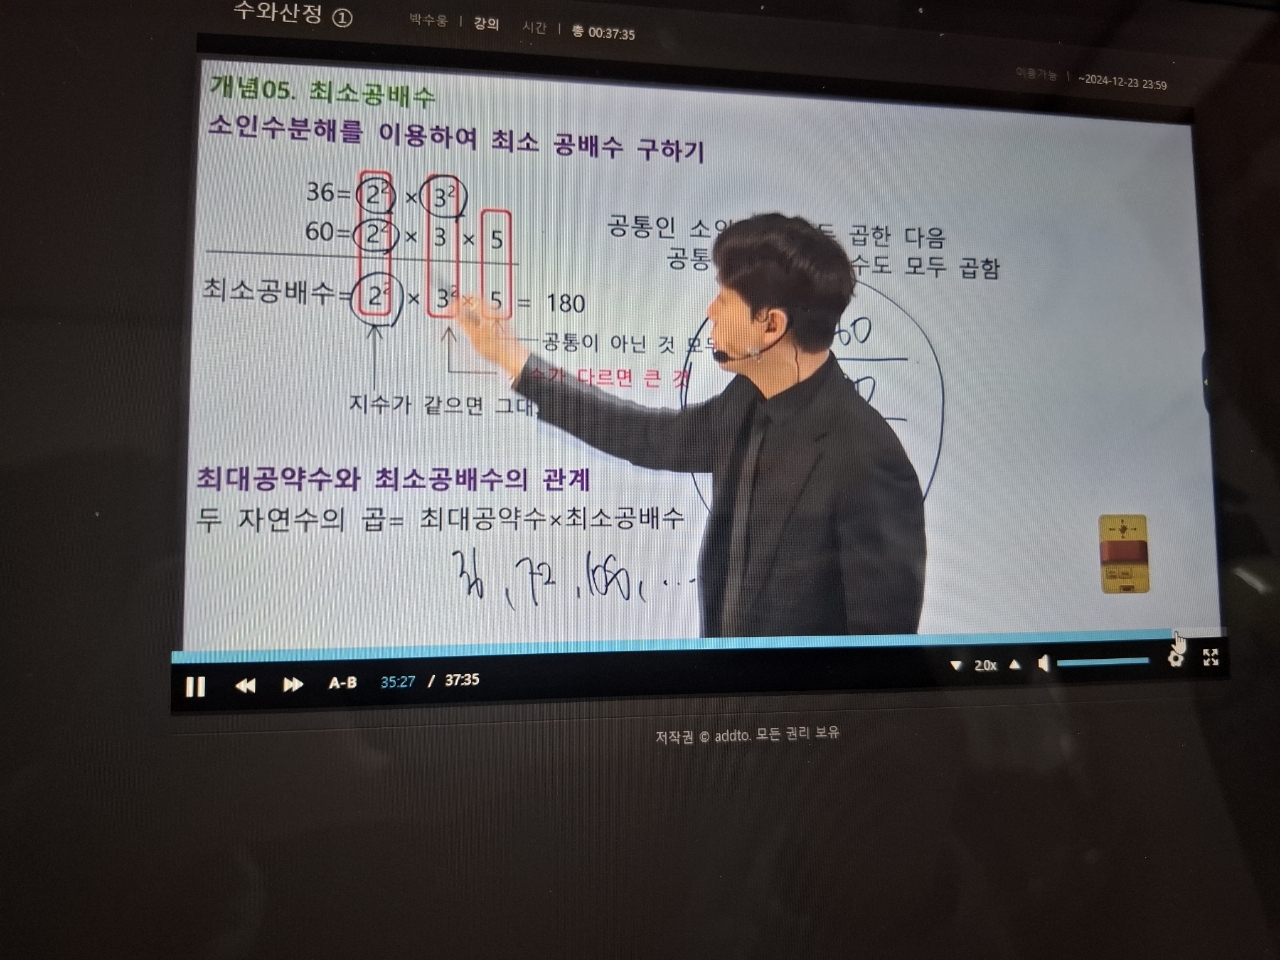 수와산정 ①
박수웅 | 강의 시간 | 총 00:37:35
이용가능 | ~2024-12-23 23:59
개념05. 최소공배수
소인수분해를 이용하여 최소 공배수 구하기
36= 2² × 3²
60= 2² × 3 × 5
공통인 곱한 다음
공통 수도 모두 곱함
최소공배수= 2² × 3² × 5 = 180
60
공통이 아닌 것 모두
다르면 큰 것
지수가 같으면 그대
최대공약수와 최소공배수의 관계
두 자연수의 곱= 최대공약수×최소공배수
36, 72, 108, ...
A-B 35:27 / 37:35 2.0x
저작권 © addto. 모든 권리 보유